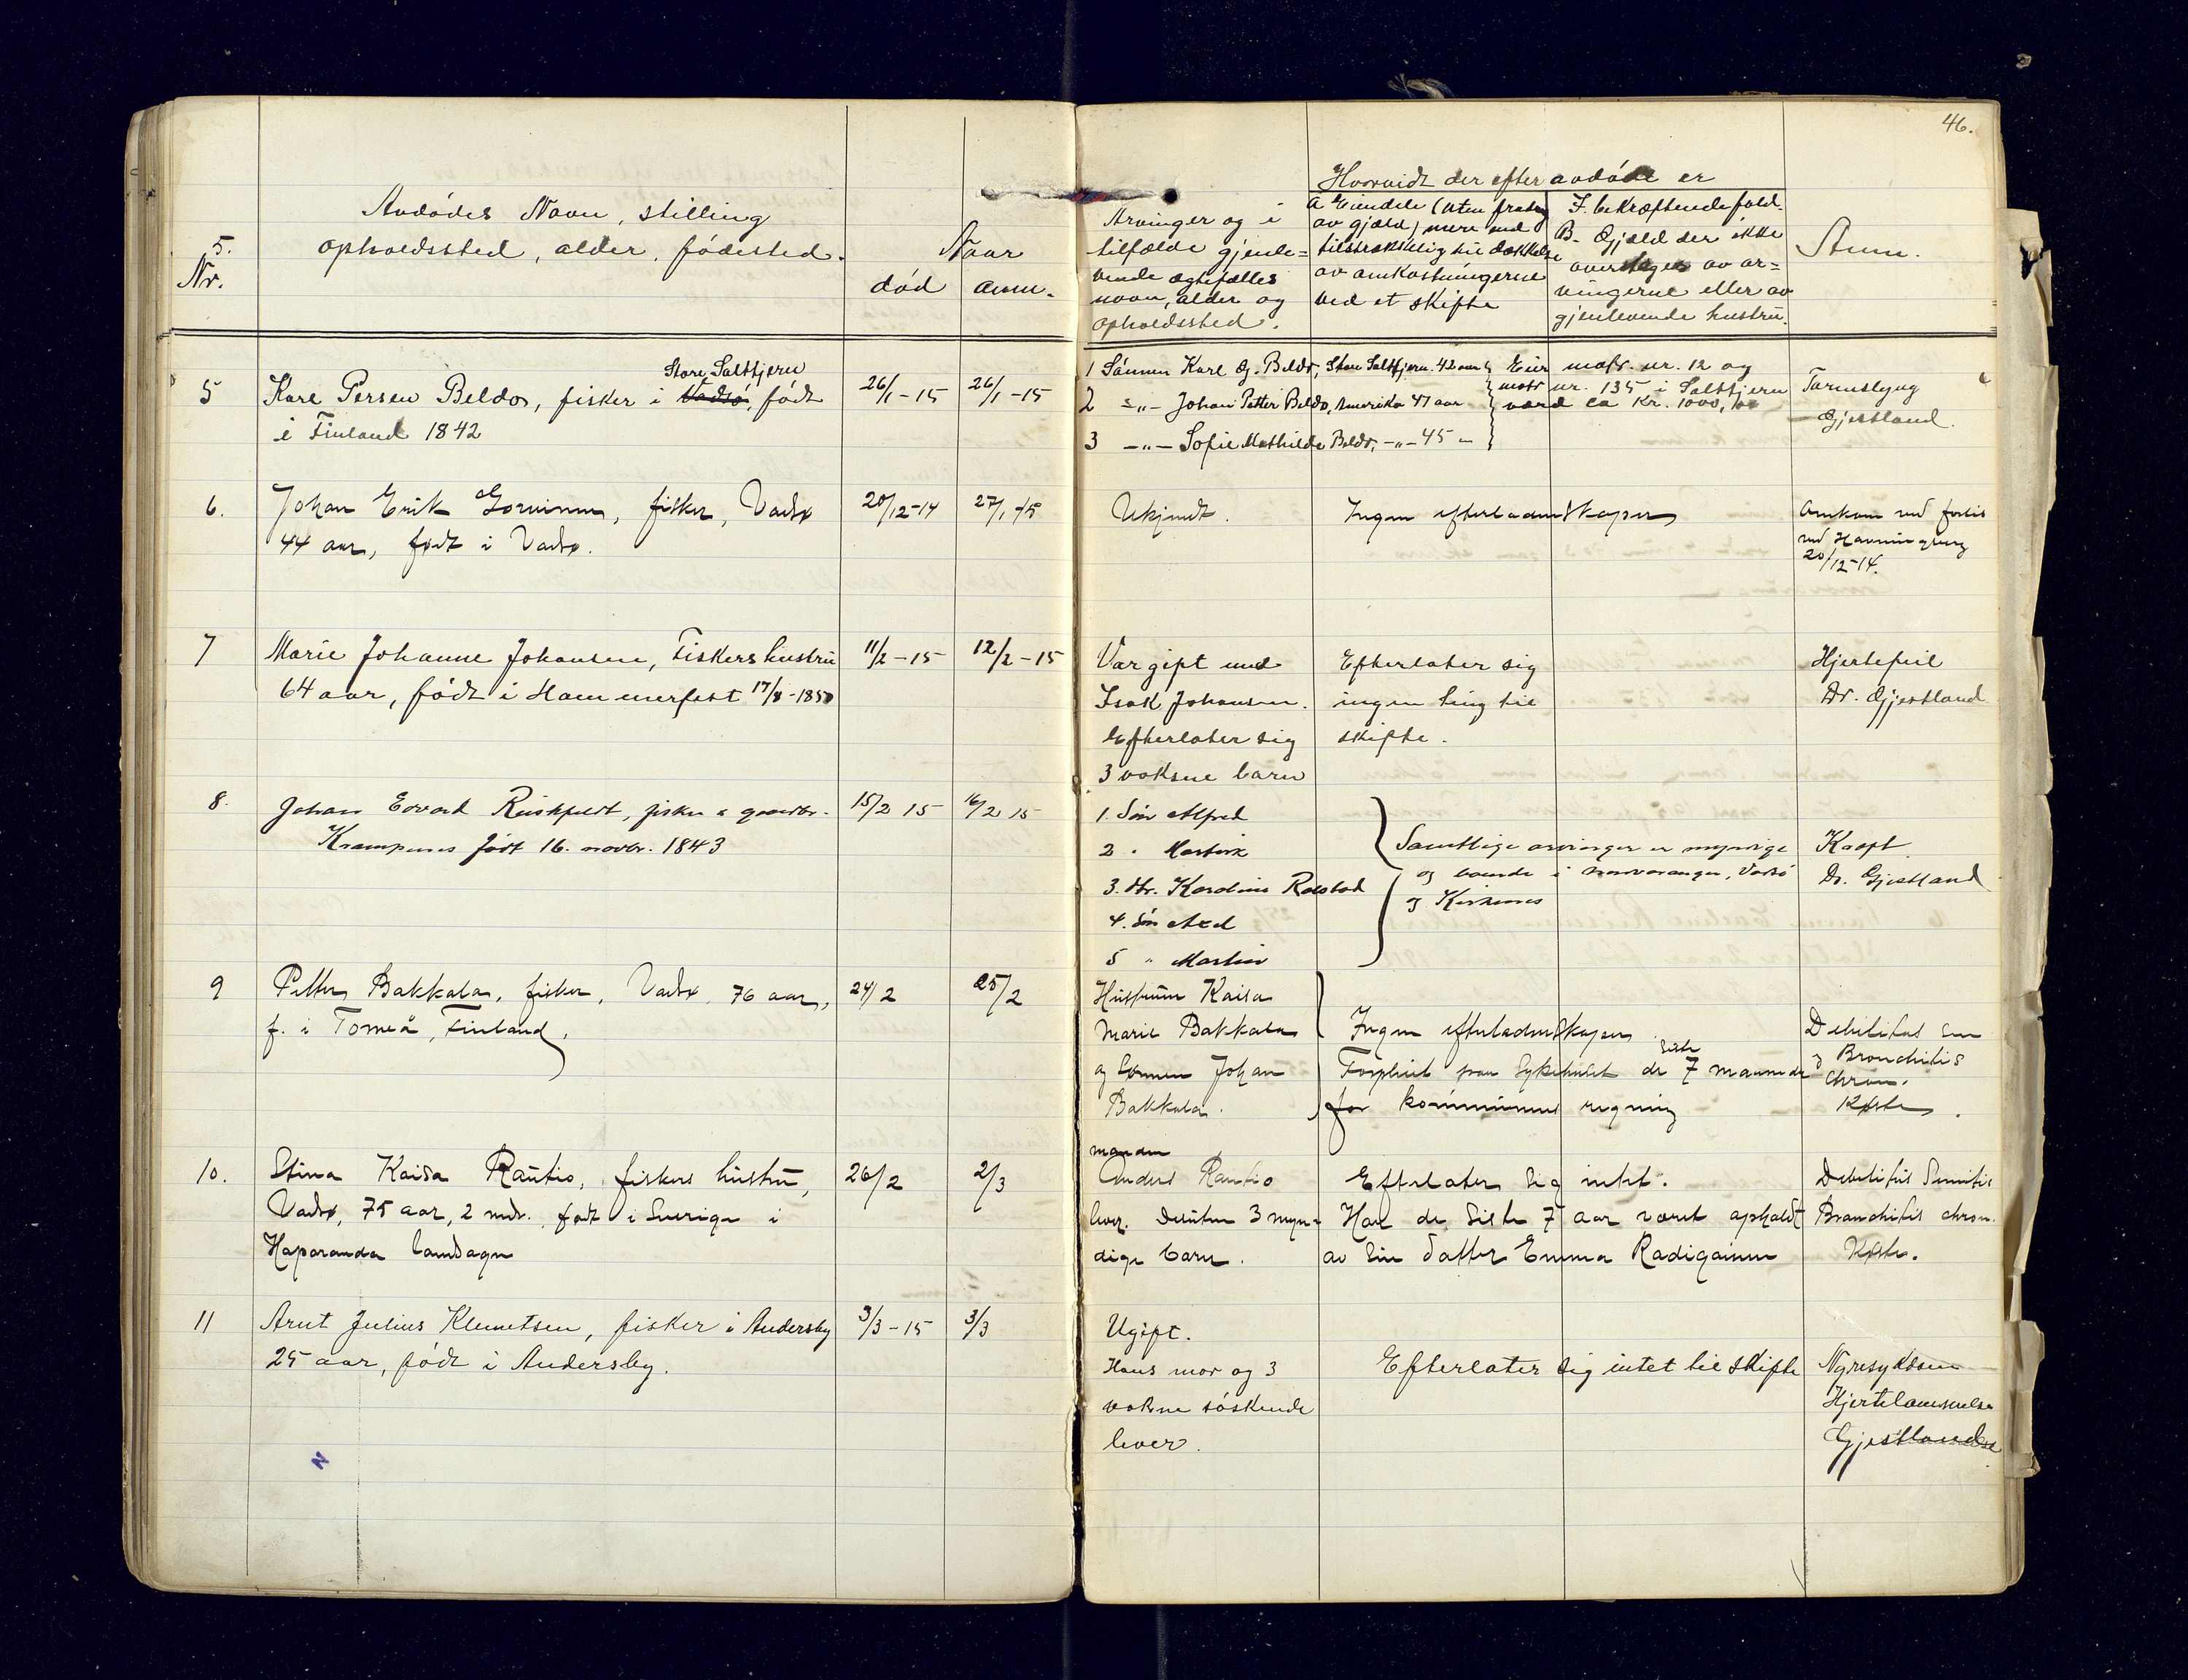 46.
5.
Nr.
Avdødes Navn, stilling
opholdssted, alder, fødested.
Naar
død
anm.
Arvinger og i
tilfælde gjenle=
vende ægtefælles
navn, alder og
opholdssted.
Hvorvidt der efter avdøde er
A Eiendele (uten fradrag
av gjæld) mere end
tilstrækkelig til dækkelse
av omkostningerne
ved et skifte
I. bekræftende fald.
B. Gjæld der ikke
overtages av ar=
vingerne eller av
gjenlevende hustru.
Anm.
5
Store Saltfjern
Karl Persen Beldo, fisker i Vadsø, født
i Finland 1842
26/1-15
26/1-15
1 Sønnen Karl J. Beldo, Store Saltfjern. 42 aar
2 -"- Johan Petter Beldo, Amerika 47 aar
3 -"- Sofie Mathilde Beldo, -"- 45 -
Eier matr. nr. 12 og
matr nr. 135 i Saltfjern
værd ca Kr. 1000,00
Tarmslyng
Gjestland.
6.
Johan Erik, fisker, Vadsø
44 aar, født i Vadsø.
20/12-14
27/1-15
Ukjendt.
Ingen efterladenskaper
Omkom ved forlis
ved Havningberg
20/12-14.
7
Marie Johanne Johansen, Fiskers hustru
64 aar, født i Hammerfest 17/8-1850
11/2-15
12/2-15
Var gift med
Isak Johansen.
Efterlater sig
3 voksne barn
Efterlater sig
ingen ting til
skifte.
Hjertefeil
Dr. Gjestland
8.
Johan Edvard, fisker & gaardbr.
Krampenes født 16. novbr. 1843
15/2 15
16/2 15
1. Søn Alfred
2 " 
3. dtr. Karoline Rolstad
4. Søn Axel
5 " Martin
Samtlige arvinger er myndige
og boende i Nordvaranger, Vadsø
og Kirkenes
Kræft
Dr. Gjestland
9
Petter Bakkala, fisker, Vadsø, 76 aar,
f. i Torneå, Finland.
24/2
25/2
Hustruen Kaisa
Marie Bakkala
og Sønnen Johan
Bakkala.
Ingen efterladenskaper
siste
Forpleiet paa Sykehuset de 7 maaneder
for kommunens regning
Debilitas sen
og Bronchitis
chron.
10.
Stina Kaisa Rautio, fiskers hustru,
Vadsø, 75 aar, 2 mdr. født i Sverige i
Haparanda landsogn
26/2
2/3
manden
Anders Rautio
lever. Desuten 3 myn=
dige barn.
Efterlater sig intet.
Har de siste 7 aar været opholdt
av sin datter Emma Radigainen
Debilitas Senilis
Bronchitis chron.
11
Arnt Julius Klemetsen, fisker i Andersby
25 aar, født i Andersby.
3/3-15
3/3
Ugift.
Hans mor og 3
voksne søskende
lever.
Efterlater sig intet til skifte
Nyresykdom
Hjertelammelse
Gjestland